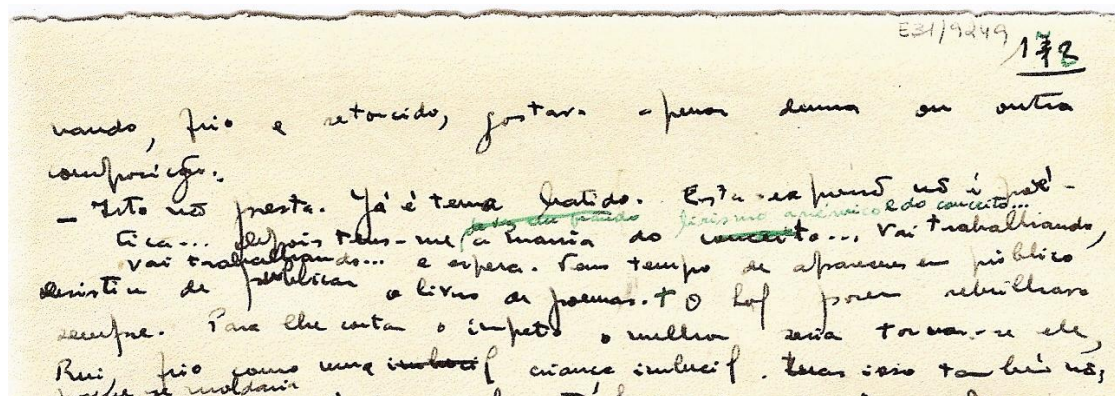 E31/9249
178
nando, frio e retorcido, gostava apenas duma ou outra
composição.
— Isto não presta. Já é tema batido. Esta expressão não é poé-
lirismo anémico e do conceito...
tica... depois tens-me a mania do conceito... Vai trabalhando,
vai trabalhando... e espera. Tens tempo de aparecer em público
desistiu de publicar o livro de poemas. O porém rebrilhava
sempre. Para lhe cortar o ímpeto o melhor seria tornar-se ele,
Rui, frio como uma imbecil criança imbecil. Mas isso também não,
se moldaria